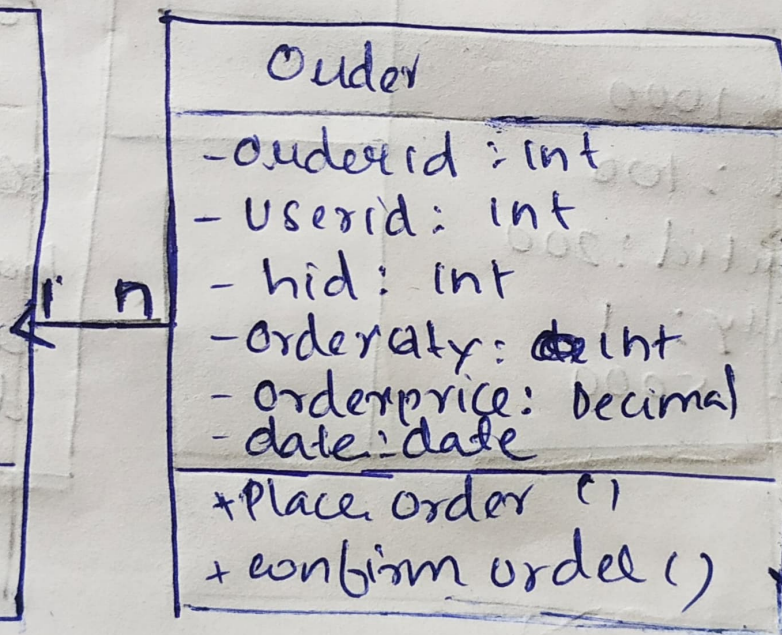 Order
- orderid : int
- userid : int
- hid : int
1 n
- orderQty : int
- orderprice : Decimal
- date : date
+ Place order ()
+ confirm order ()